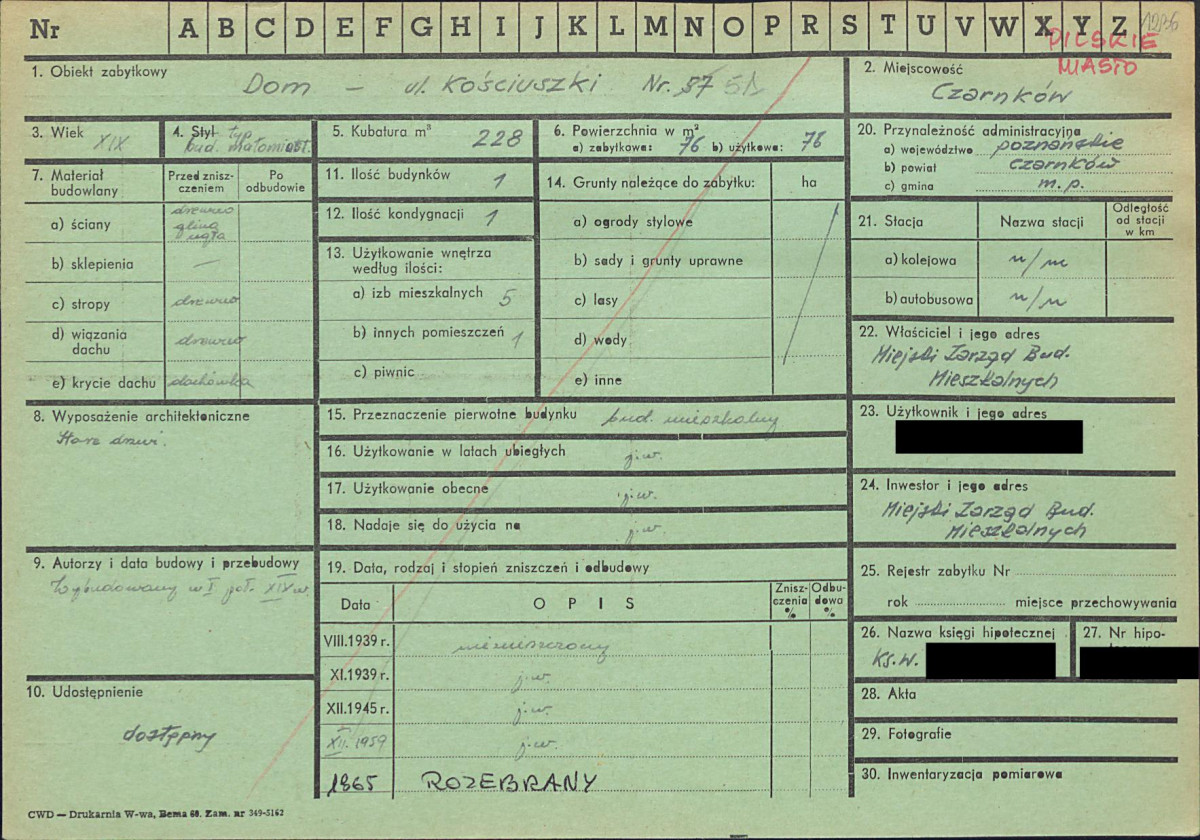 Nr A B C D E F G H I J K L M N O P R S T U V W X Y Z 1236
PILSKIE
MIASTO
1. Obiekt zabytkowy Dom – ul. Kościuszki Nr. 37 51
2. Miejscowość
Czarnków
3. Wiek XIX
4. Styl typ
bud. małomiast.
5. Kubatura m³ 228
6. Powierzchnia w m²
a) zabytkowa: 76 b) użytkowa: 76
20. Przynależność administracyjna
a) województwo poznańskie
b) powiat czarnków
c) gmina m.p.
7. Materiał budowlany
Przed znisz-
czeniem
Po
odbudowie
a) ściany drzewo
glina
cegła
b) sklepienia —
c) stropy drzewo
d) wiązania
dachu drzewo
e) krycie dachu dachówka
11. Ilość budynków 1
12. Ilość kondygnacji 1
13. Użytkowanie wnętrza
według ilości:
a) izb mieszkalnych 5
b) innych pomieszczeń 1
c) piwnic
14. Grunty należące do zabytku: ha
a) ogrody stylowe
b) sady i grunty uprawne
c) lasy
d) wody
e) inne
21. Stacja Nazwa stacji
Odległość
od stacji
w km
a) kolejowa n/m
b) autobusowa n/n
22. Właściciel i jego adres
Miejski Zarząd Bud.
Mieszkalnych
8. Wyposażenie architektoniczne
Stare drzwi.
15. Przeznaczenie pierwotne budynku bud. mieszkalny
16. Użytkowanie w latach ubiegłych j.w.
17. Użytkowanie obecne j.w.
18. Nadaje się do użycia na j.w.
23. Użytkownik i jego adres
24. Inwestor i jego adres
Miejski Zarząd Bud.
Mieszkalnych
9. Autorzy i data budowy i przebudowy
Wybudowany w I poł. XIX w.
19. Data, rodzaj i stopień zniszczeń i odbudowy
Data OPIS
Znisz-
czenia
%
Odbu-
dowa
%
VIII.1939 r. niezniszczony
XI.1939 r. j.w.
XII.1945 r. j.w.
XII.1959 j.w.
1965 ROZEBRANY
25. Rejestr zabytku Nr
rok miejsce przechowywania
26. Nazwa księgi hipotecznej
Ks.W.
27. Nr hipo-
10. Udostępnienie
dostępny
28. Akta
29. Fotografie
30. Inwentaryzacja pomiarowa
CWD — Drukarnia W-wa, Bema 60. Zam. nr 349-5162